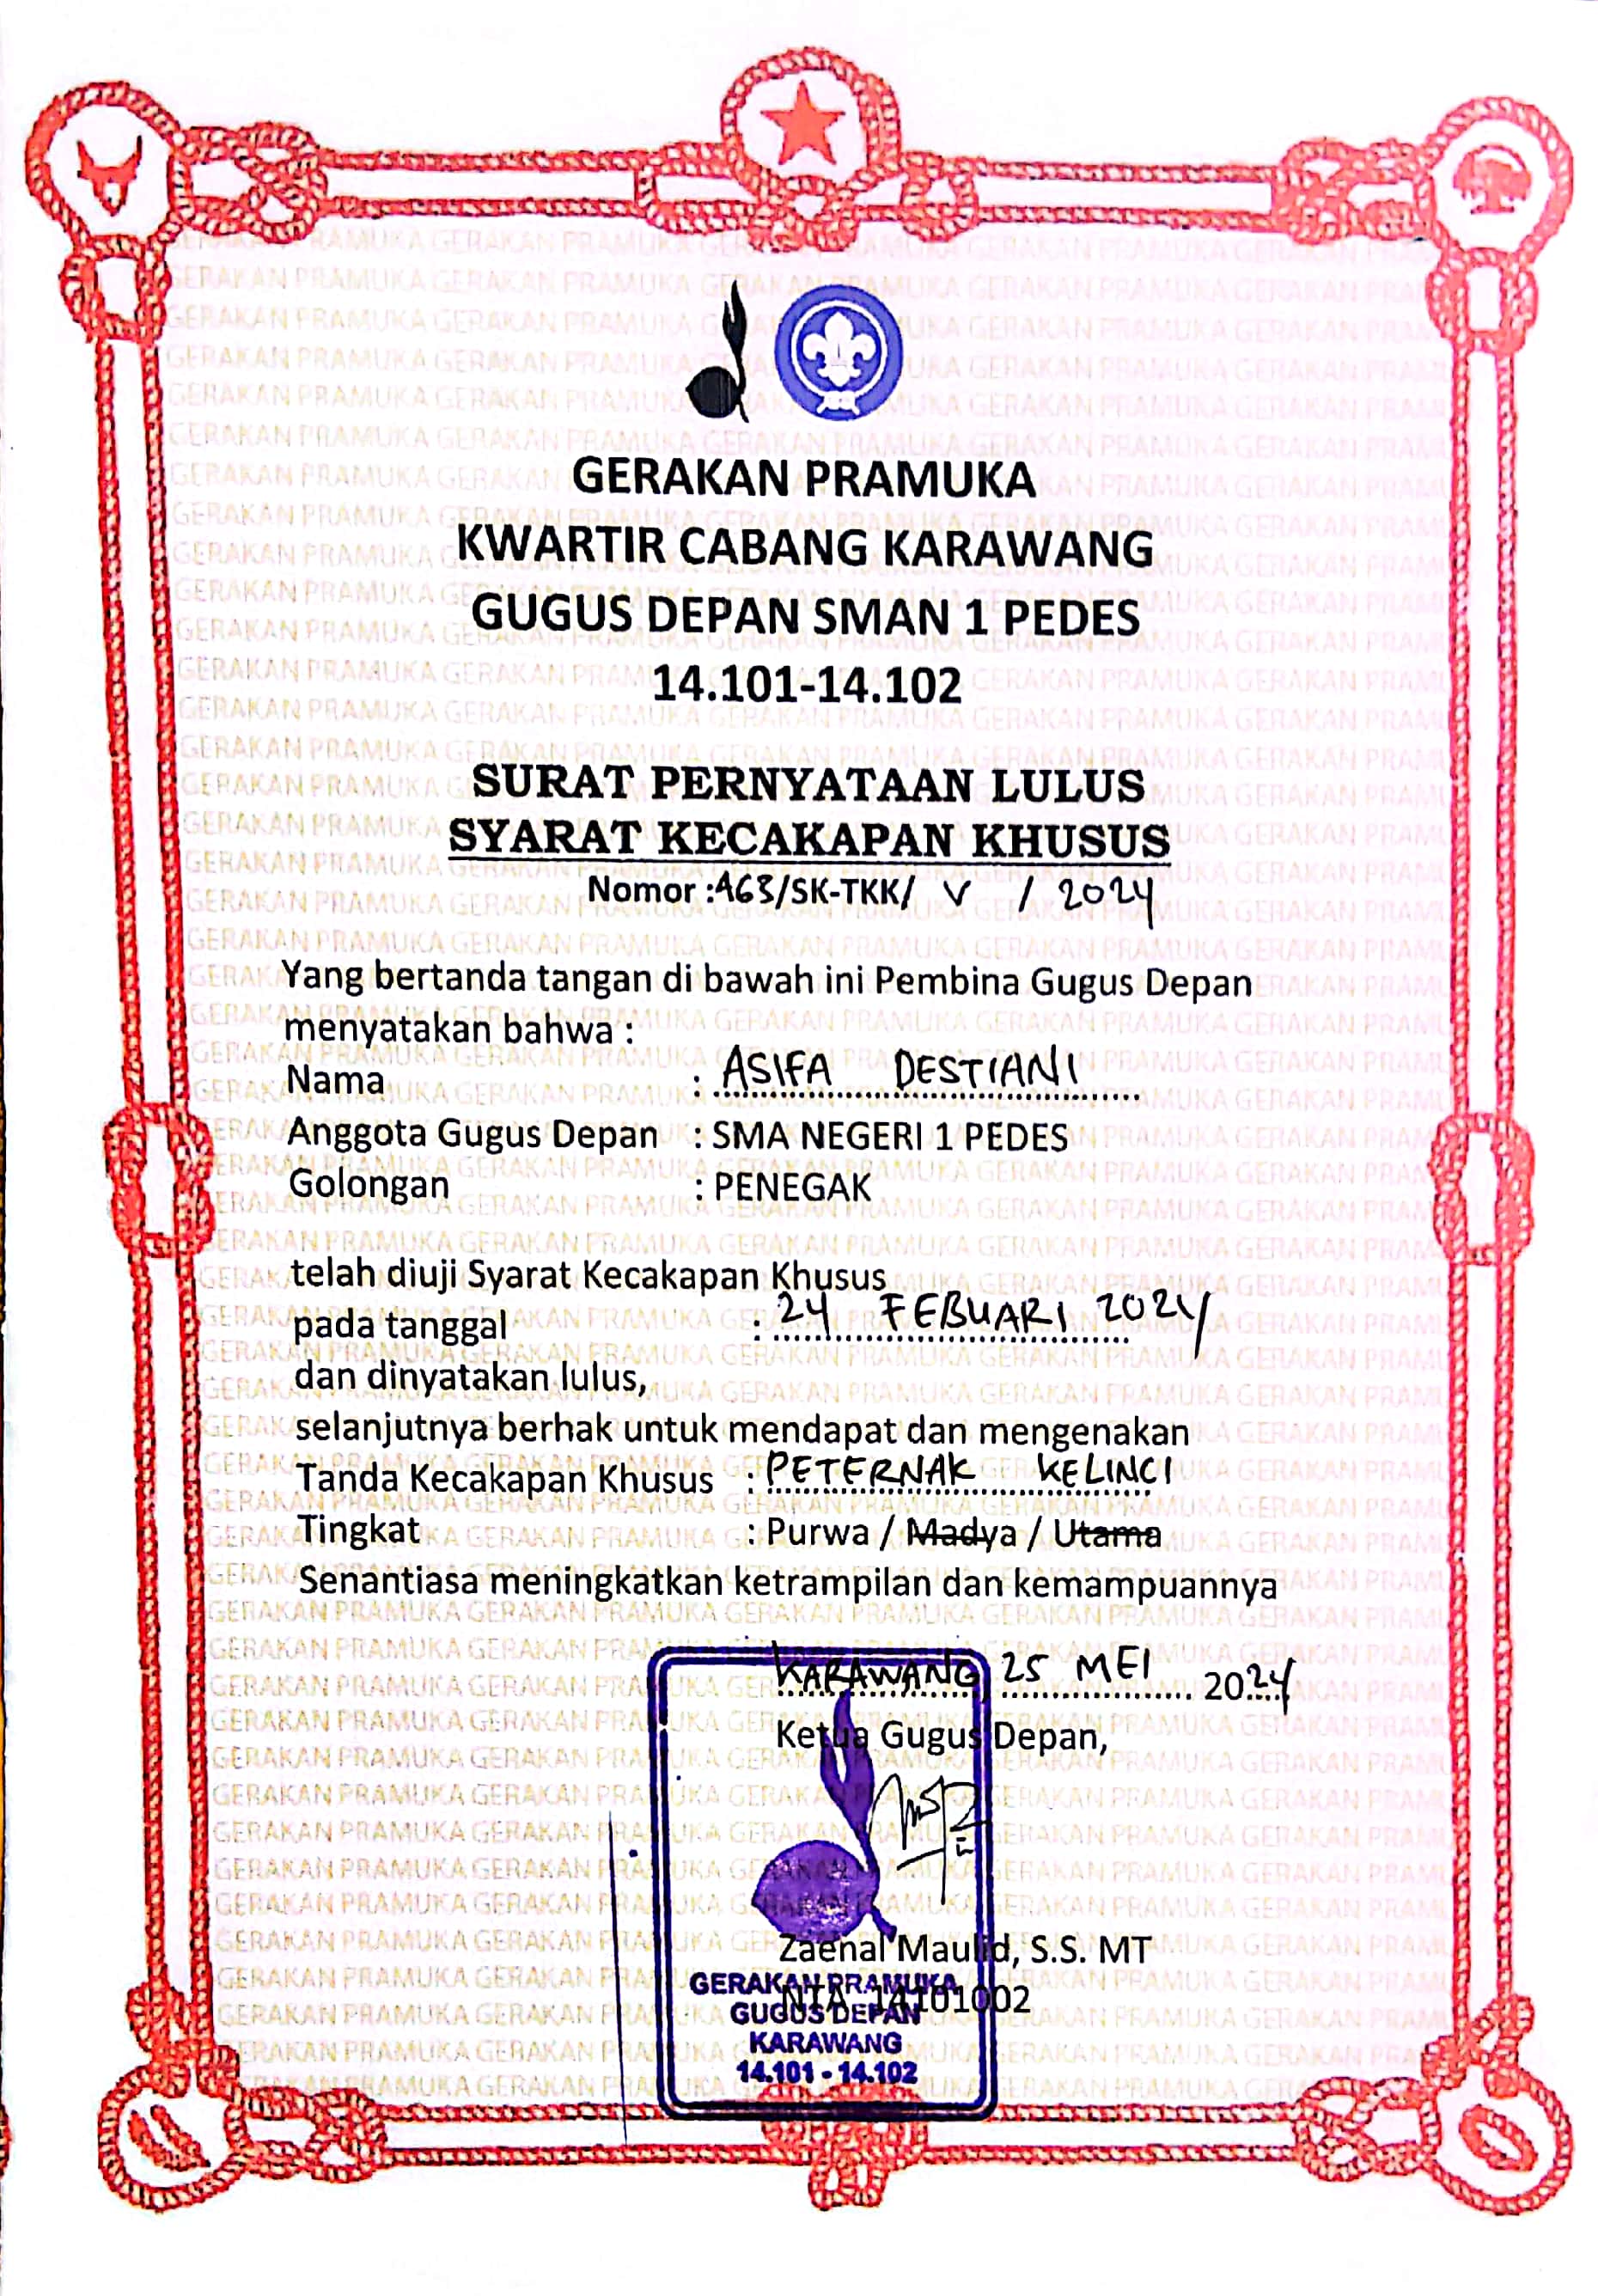 GERAKAN PRAMUKA
KWARTIR CABANG KARAWANG
GUGUS DEPAN SMAN 1 PEDES
14.101-14.102
SURAT PERNYATAAN LULUS
SYARAT KECAKAPAN KHUSUS
Nomor :463/SK-TKK/ V / 2024
Yang bertanda tangan di bawah ini Pembina Gugus Depan
menyatakan bahwa :
Nama : ASIFA DESTIANI
Anggota Gugus Depan : SMA NEGERI 1 PEDES
Golongan : PENEGAK
telah diuji Syarat Kecakapan Khusus
pada tanggal : 24 FEBUARI 2024
dan dinyatakan lulus,
selanjutnya berhak untuk mendapat dan mengenakan
Tanda Kecakapan Khusus : PETERNAK KELINCI
Tingkat : Purwa / Madya / Utama
Senantiasa meningkatkan ketrampilan dan kemampuannya
KARAWANG, 25 MEI 2024
Ketua Gugus Depan,
Zaenal Maulid, S.S. MT
NTA. 14101002
GERAKAN PRAMUKA
GUGUS DEPAN
KARAWANG
14.101 - 14.102